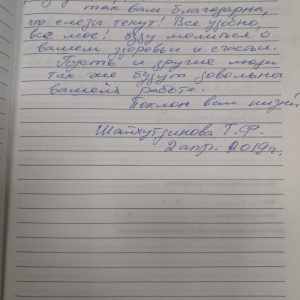 так вам благодарна,
что слёзы текут! Все удобно,
все мое! Буду молиться о
вашем здоровьи и счастьи.
Пусть и другие люди
так же будут довольны
вашей работе.
Поклон вам низкий
Шайхутдинова Г.Ф.
2 апр. 2019 г.